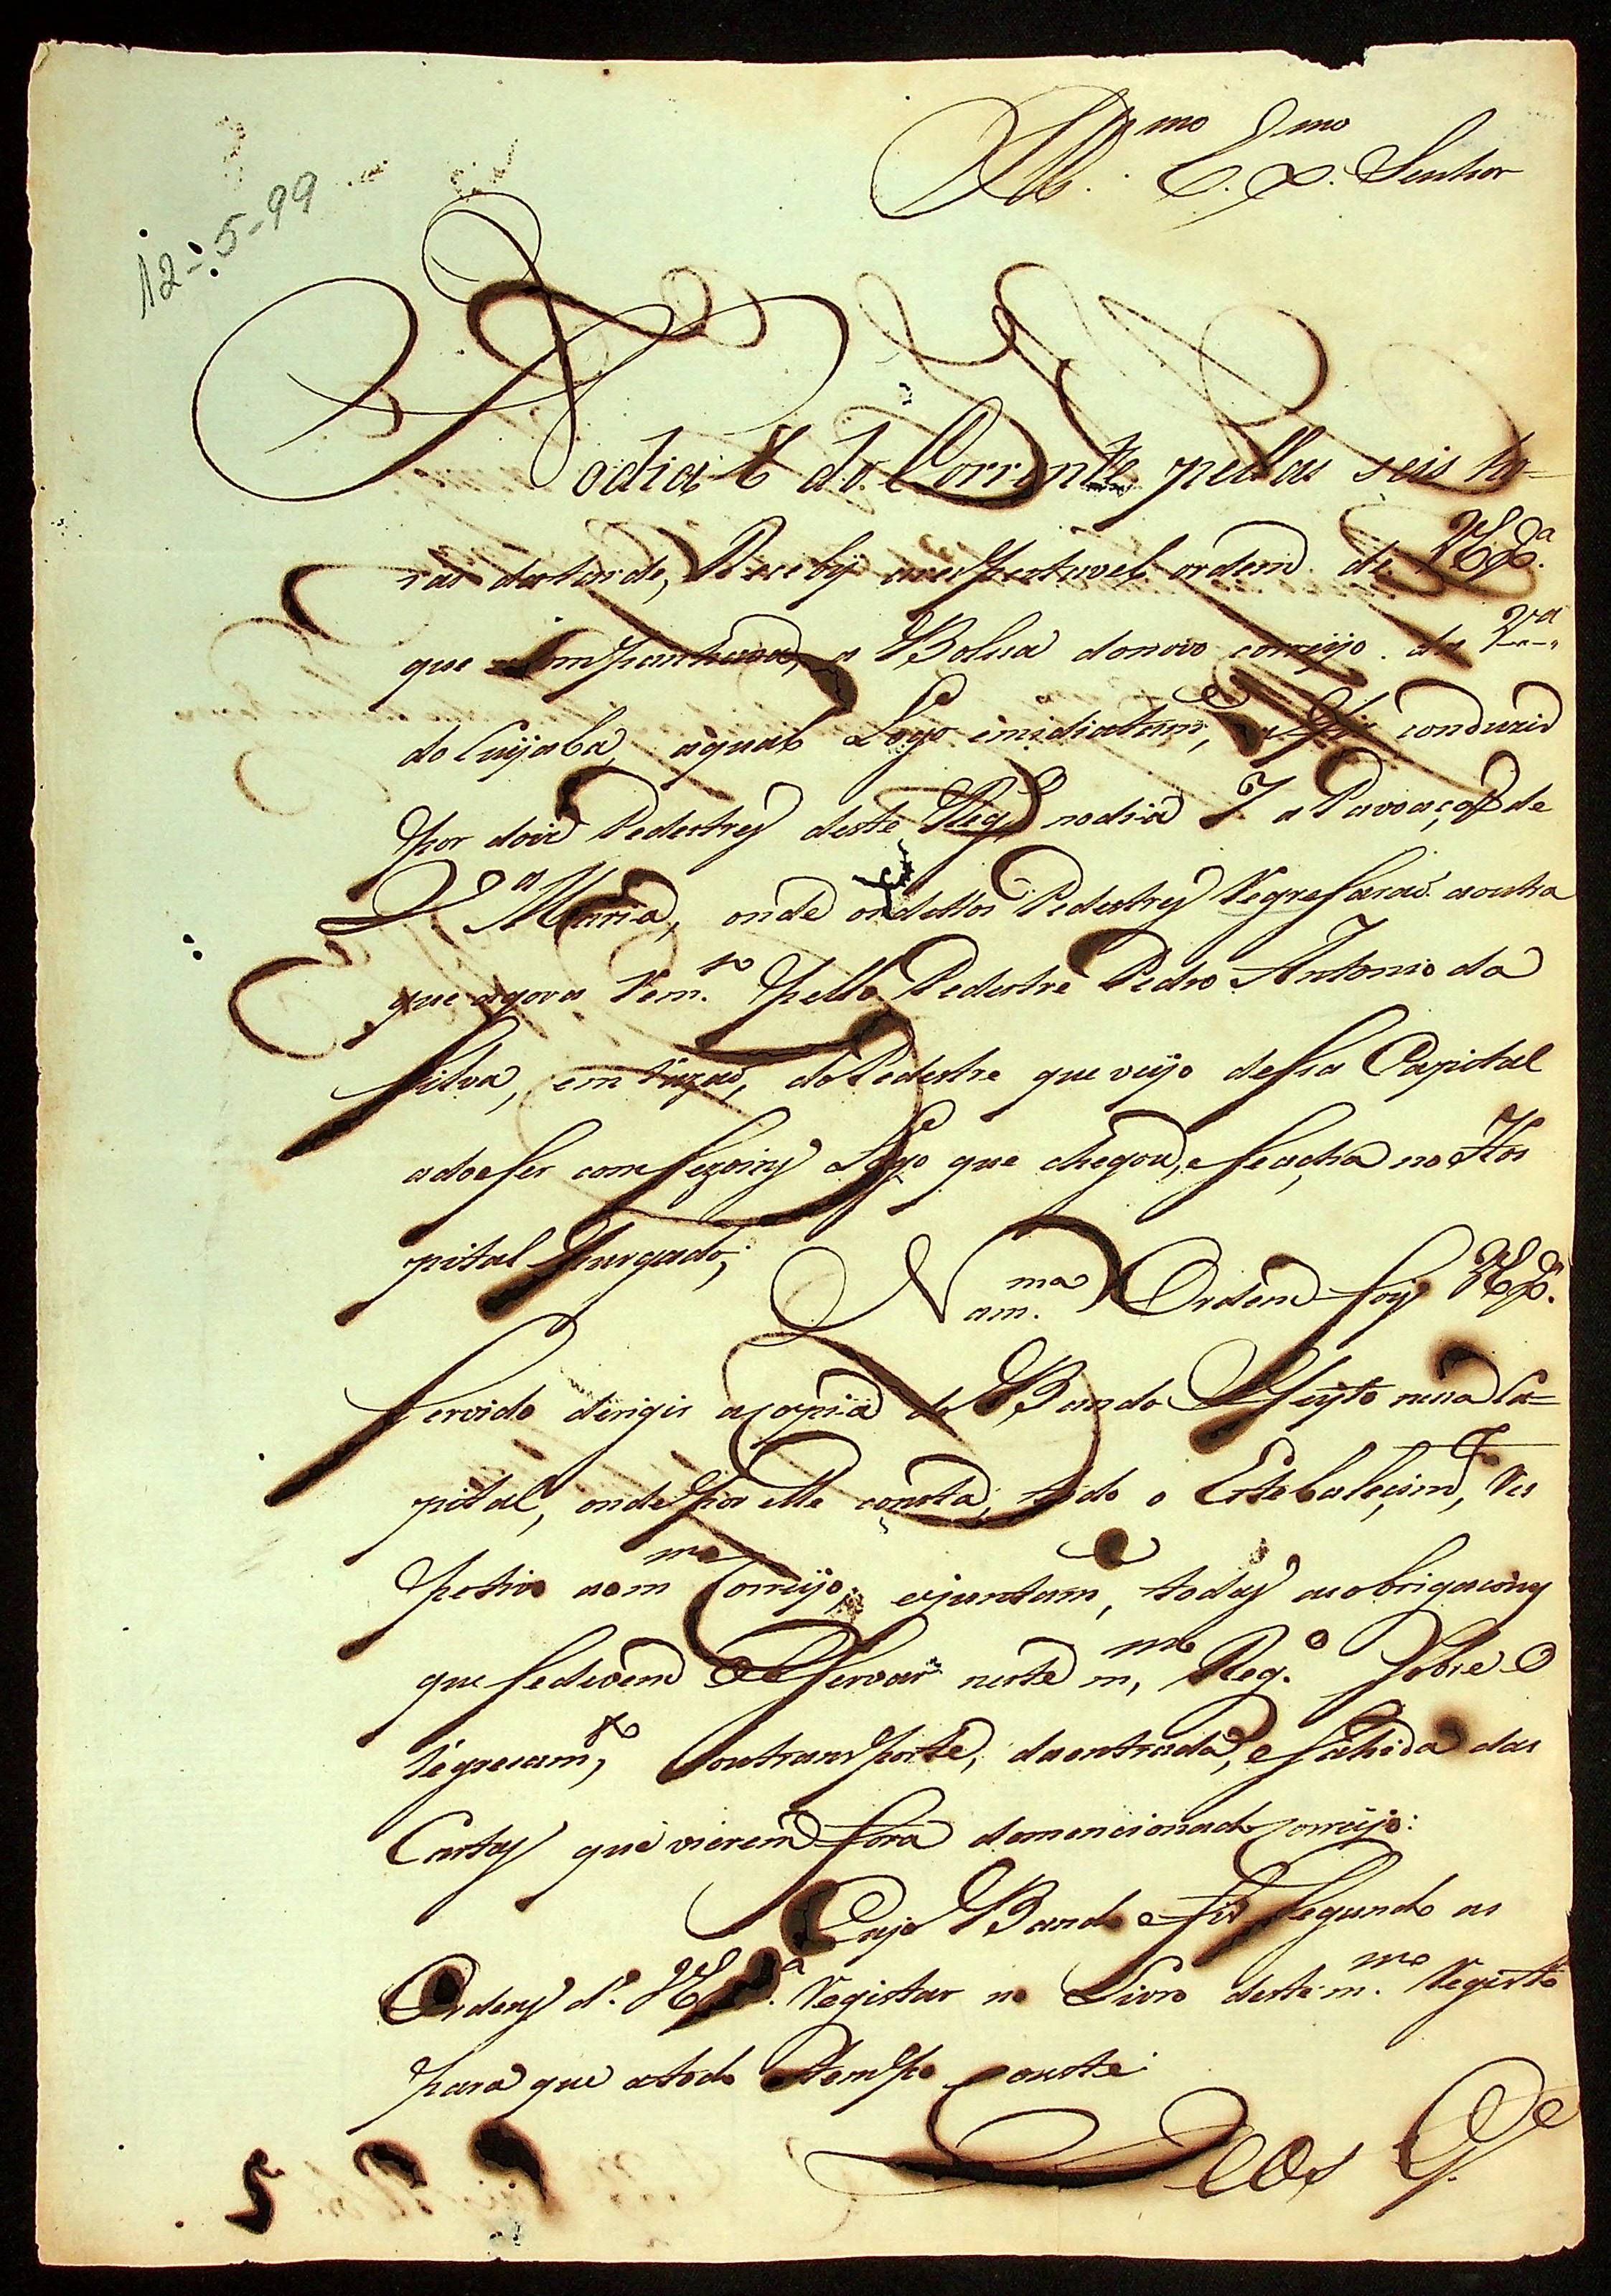 Ill.mo Ex.mo Senhor
12-5-99
Aodia 6 do Corrente pellas seis ho=
ras datarde, Recebÿ arespeitavel ordem de V.Ex.a
que acompanhava, a Bolssa donovo correÿo da V.a
do Cuÿaba, aqual Logo imidiatam, a fis conduzir
por dois Pedestres deste Reg.o nodia 7 a Povoação de
S. Maria, onde os dittos Pedestres Regressarão aoutra
que agora Rem.to pello Pedestre Pedro Antonio da
Silva, em razaõ, do Pedestre que veÿo dessa Capital
adoesser com sezoins Logo que chegou, e se acha no Hos
pital purgado;
Nam.ma Ordem foÿ V.Ex.a
servido dirigir acopia do Bando Feÿto nessa Ca=
pital, onde por elle consta, todo o Estebaleçim.to, Res
petivo aom.mo Correÿo, ejuntam, todas asobrigacoins
que sedevem Obsservar neste m.mo Reg.o sobre o
regresam.to, outransporte, daentrada, e sahida das
Cartas que vierem fora domencionado correÿo:
Cujo Bando fis segundo as
Ordens d. V.Ex.a Registar no Livro deste m.mo Registo
para que atodo otempo Conste
Deos G.e